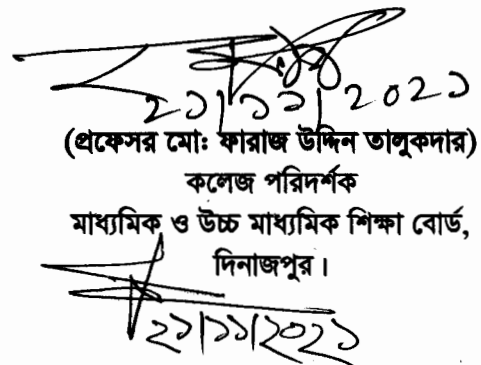 ২১/১১/২০২১
(প্রফেসর মো: ফারাজ উদ্দিন তালুকদার)
কলেজ পরিদর্শক
মাধ্যমিক ও উচ্চ মাধ্যমিক শিক্ষা বোর্ড,
দিনাজপুর।
২১/১১/২০২১